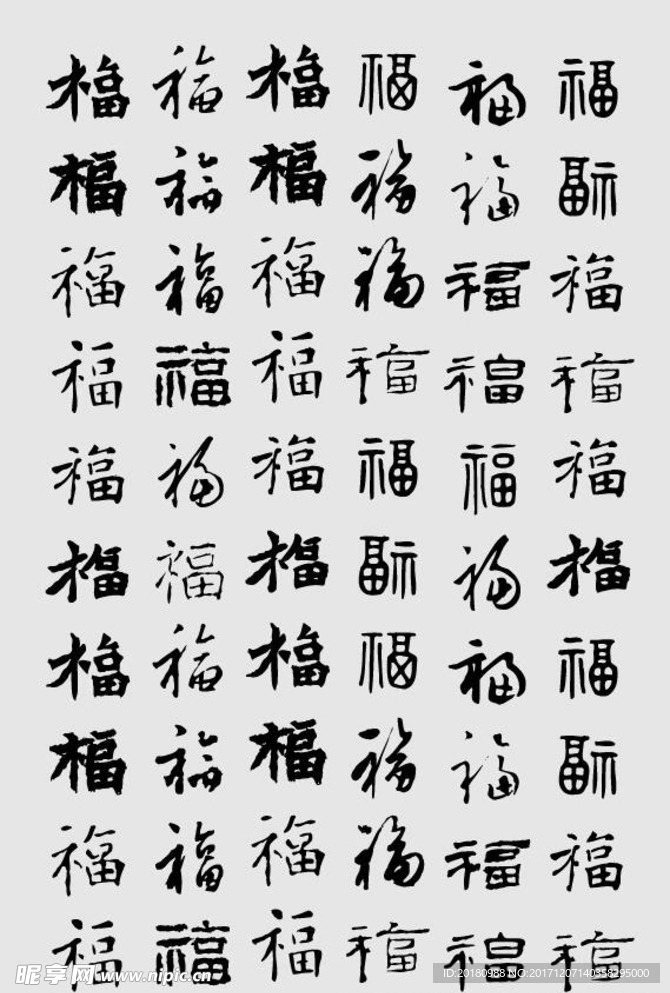 福 福 福 福 福 福
福 福 福 福 福 福
福 福 福 福 福 福
福 福 福 福 福 福
福 福 福 福 福 福
福 福 福 福 福 福
福 福 福 福 福 福
福 福 福 福 福 福
福 福 福 福 福 福
福 福 福 福 福 福
昵享网 www.nipic.cn
ID:20180988 NO:20171207140358295000